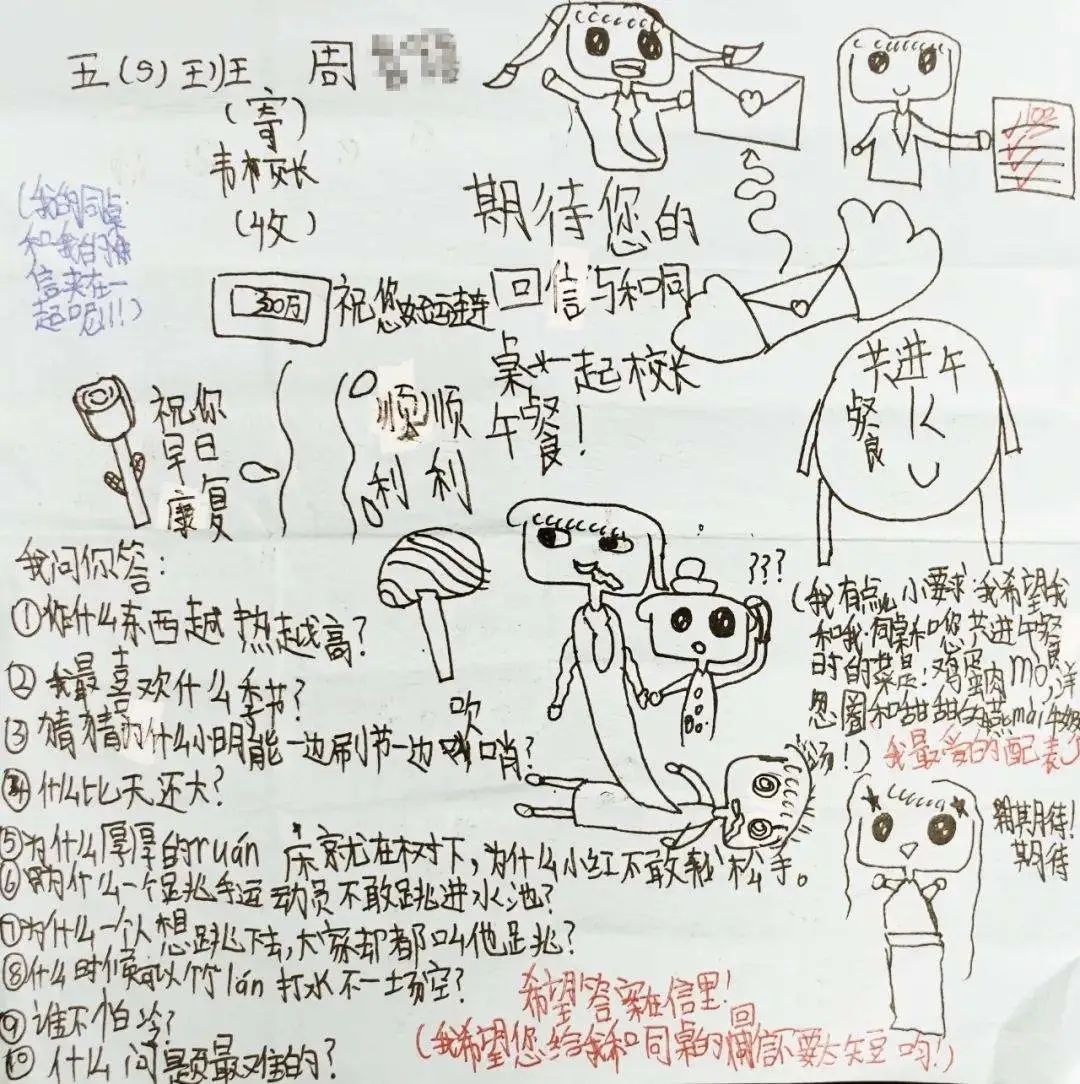 五(9)班 周
(寄)
韦校长
(收)
(我的同桌
和我的
信夹在一
起呢!!!)
100
期待您的
回信与和同
桌一起校长
午餐!
300万
祝您好运连连
祝你
早日
康复
顺顺
利利
共进午
餐
我问你答:
①什么东西越热越高?
②我最喜欢什么季节?
③猜猜为什么小明能一边刷牙一边吹哨?
④什么比天还大?
⑤为什么厚厚的ruán床就在树下,为什么小红不敢松手。
⑥为什么一个跳水运动员不敢跳进水池?
⑦为什么一个人想跳下去,大家却都叫他跳?
⑧什么时候可以竹lán打水不一场空?
⑨谁不怕冷?
⑩什么问题最难的?
???
(我有点儿小要求:我希望我
和我同桌和您共进午餐
时的菜是:鸡蛋肉mo,洋
忽圈和甜甜的燕mài牛奶
汤!)
我最爱的配表
期期待!
期待
希望答案在信里!
(我希望您给我和同桌的回信不要太短哟!)